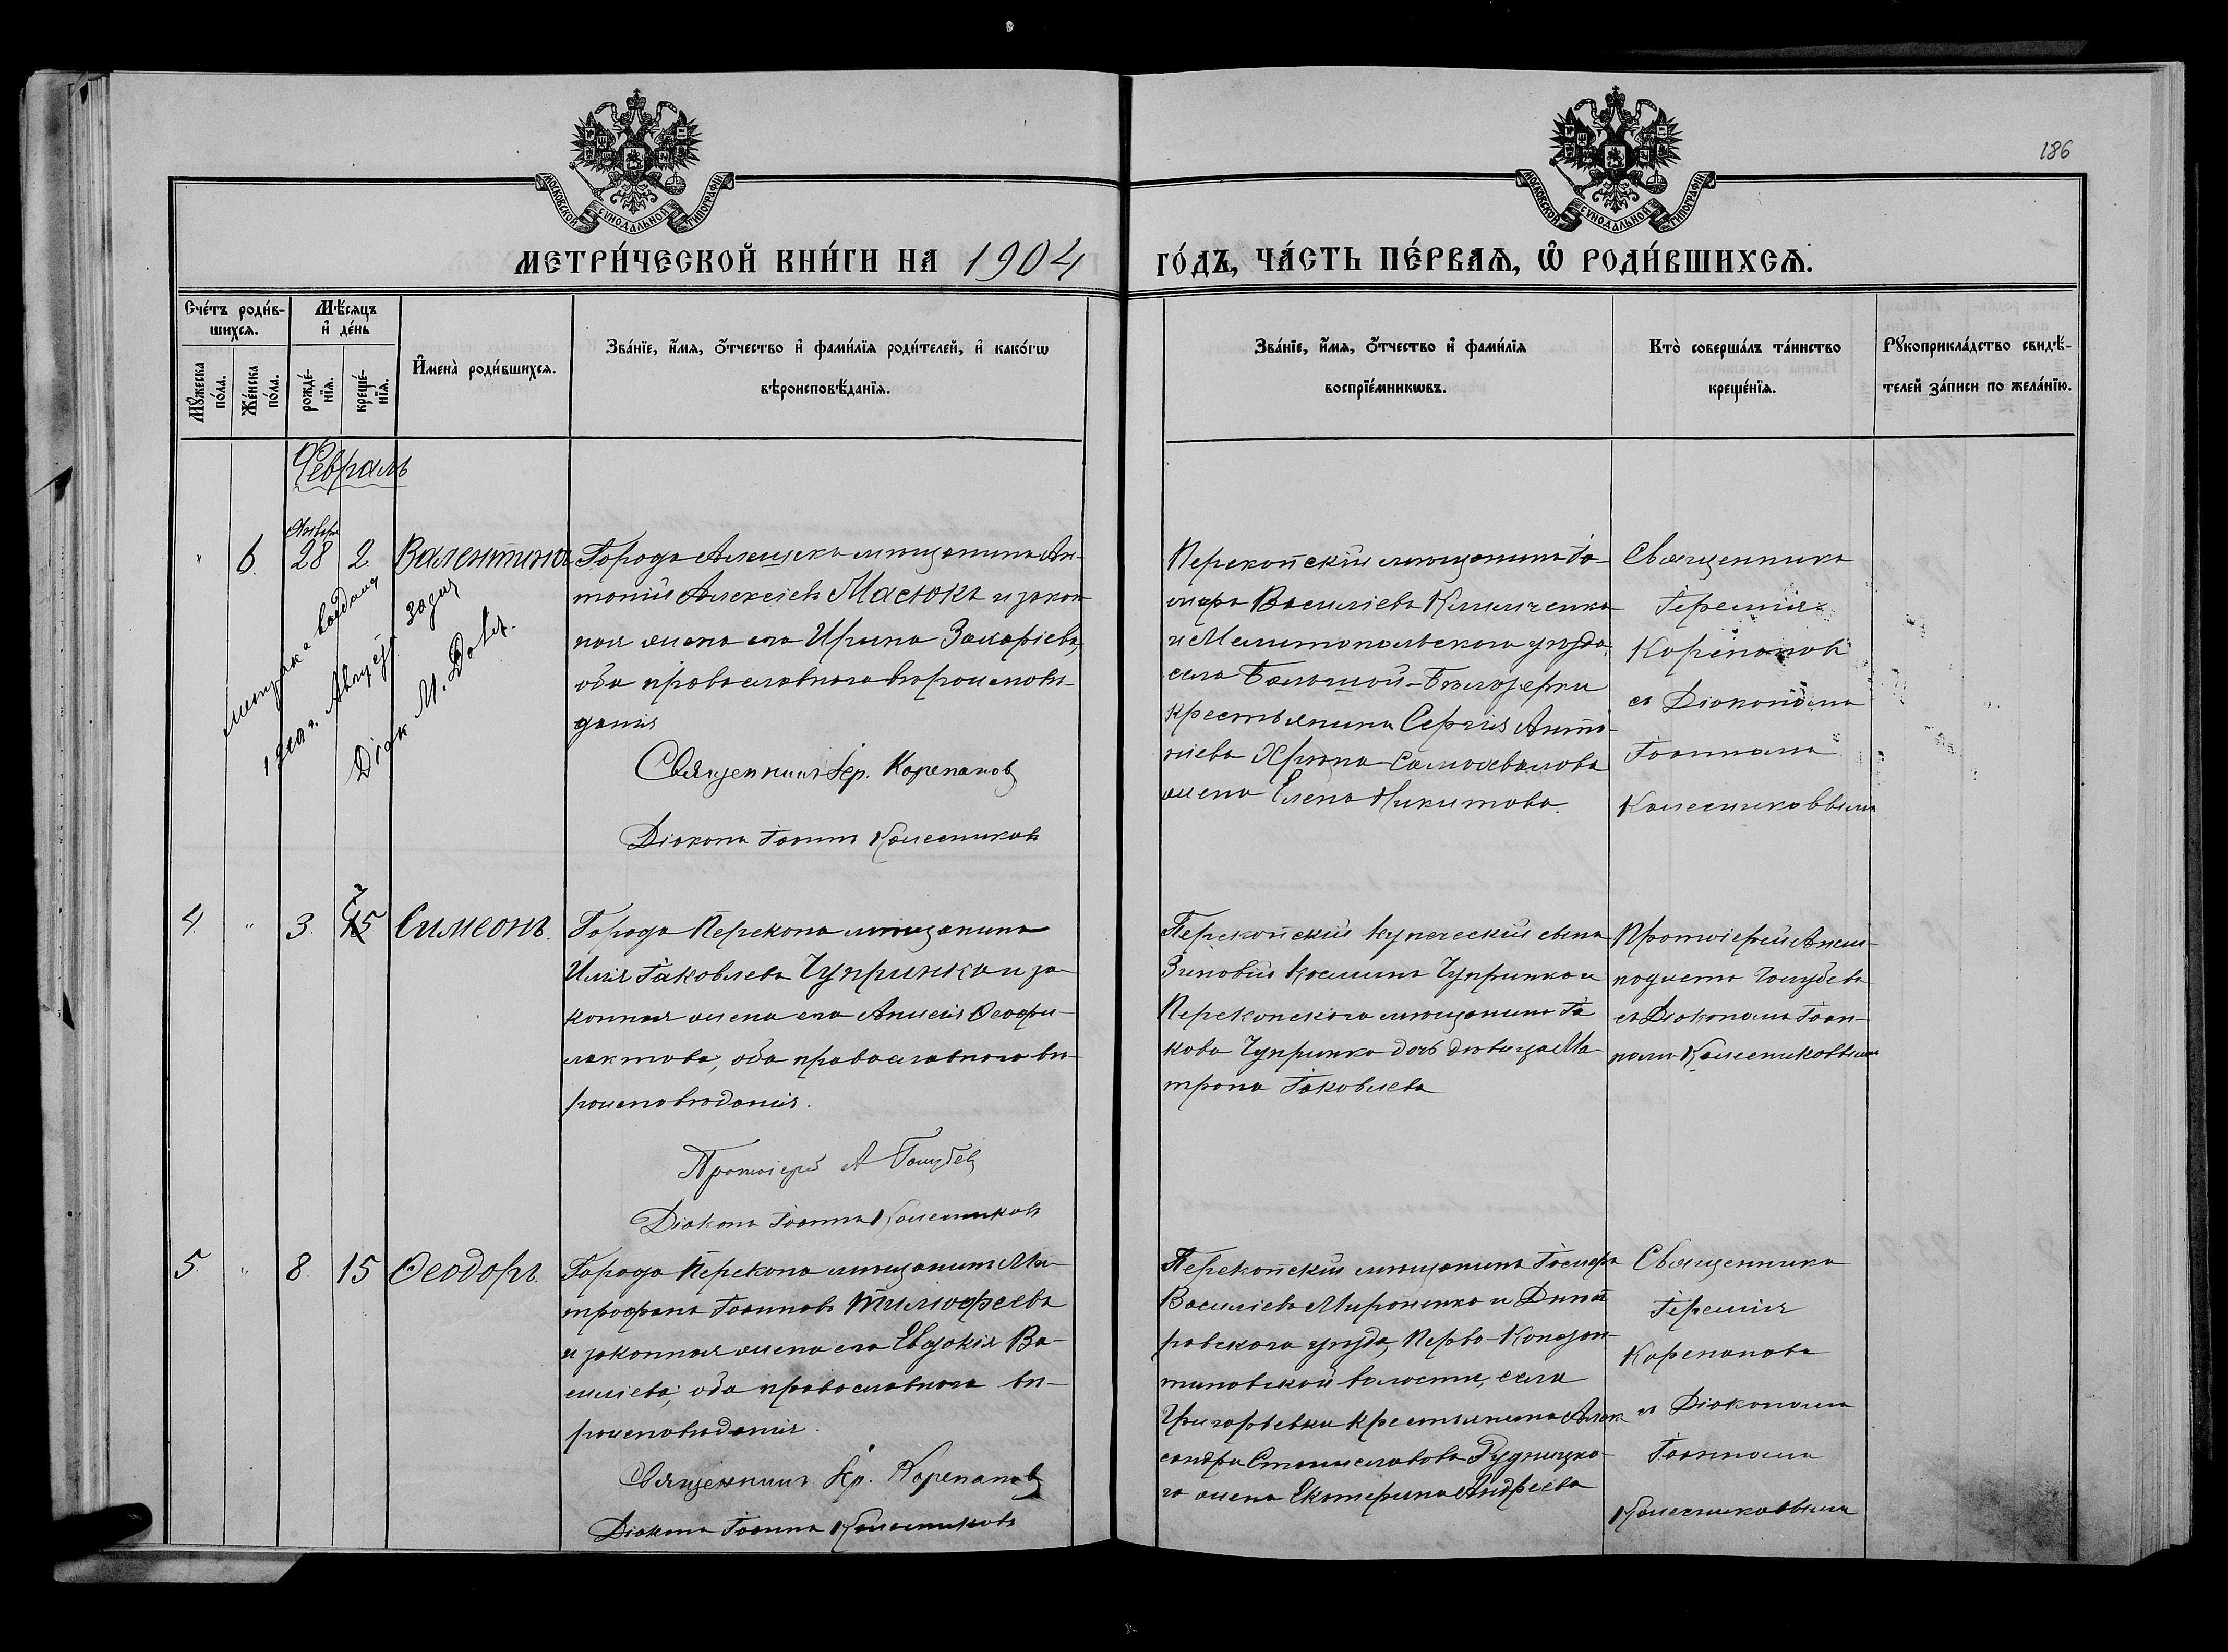 186
МОСКОВСКОЙ СУНОДАЛЬНОЙ ТИПОГРАФІИ
МОСКОВСКОЙ СУНОДАЛЬНОЙ ТИПОГРАФІИ
МЕТРИ́ЧЕСКОЙ КНИ́ГИ НА 1904
ГО́ДЪ, ЧА́СТЬ ПЕ́РВАѦ, Ѡ҆ РОДИ́ВШИХСѦ.
Сче́тъ роди́в-
шихсѧ.
Мѣ́сѧцъ
и҆ де́нь
Мꙋ́жеска
по́ла.
Же́нска
по́ла.
рожде́-
нїѧ.
креще́-
нїѧ.
И҆мена̀ роди́вшихсѧ.
Зва́нїе, и҆́мѧ, ѻ҆́тчество и҆ фами́лїѧ роди́телей, и҆ како́гѡ
вѣроисповѣ́данїѧ.
Зва́нїе, и҆́мѧ, ѻ҆́тчество и҆ фами́лїѧ
воспрїе́мникѡвъ.
Кто̀ соверша́лъ та́инство
креще́нїѧ.
Рꙋкоприкла́дство свидѣ́-
телей за́писи по жела́нїю.
Февраль
Январь
" 6. 28 2 Валентина
Города Алешекъ мѣщанинъ Ан-
тоній Алексіевъ Масюкъ и закон
ная жена его Ирина Захаріева,
оба православнаго вѣроисповѣ-
данія
Священникъ Іер. Корепановъ
Діаконъ Іоаннъ Колесниковъ
Метрика выдана
1910 г. года
Діак М.
Перекопскій мѣщанинъ Іо-
Василіевъ Клименко
и Мелитопольскаго уѣзда,
села Большой-Бѣлозерки
крестьянина Сергія Анто-
ніева Самохвалова
жена Елена Никитова.
Священникъ
Іеремія
Корепановъ
съ Діакономъ
Іоанномъ
Колесниковымъ
4. " 3. 15 7 Симеонъ.
Города Перекопа мѣщанинъ
Илія Іаковлевъ Чупринка и за-
конная жена его Анисія Ѳеофи-
лактова, оба православнаго вѣ-
роисповѣданія.
Протоіерей А Голубевъ
Діаконъ Іоаннъ Колесниковъ
Перекопскій купеческій сынъ
Зиновій Косминъ Чупринка и
Перекопскаго мѣщанина Іа
кова Чупринка дочь дѣвица Ма-
трона Іаковлева
Протоіерей Ампли-
Голубевъ
съ Діакономъ Іоан-
номъ Колесниковымъ
5. " 8. 15 Ѳеодоръ.
Города Перекопа мѣщанинъ Ми-
трофанъ Іоанновъ Тимофеевъ
и законная жена его Евдокія Ва-
силіева, оба православнаго вѣ-
роисповѣданія.
Священникъ Іер. Корепановъ
Діаконъ Іоаннъ Колесниковъ
Перекопскій мѣщанинъ Іосифъ
Василіевъ Мироненко и Днѣп
ровскаго уѣзда, Перво-Констан-
тиновской волости, села
Григорьевки крестьянина Алек
сандра Станиславова Рудницка-
го жена Екатерина Андреева
Священникъ
Іеремія
Корепановъ
съ Діакономъ
Іоанномъ
Колесниковымъ